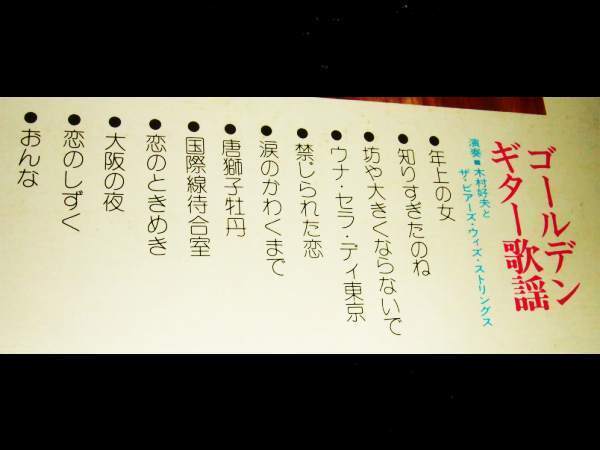 ゴールデン
ギター歌謡
演奏■木村好夫と
ザ・ビアーズ・ウィズ・ストリングス
●年上の女
●知りすぎたのね
●坊や大きくならないで
●ウナ・セラ・ディ東京
●禁じられた恋
●涙のかわくまで
●唐獅子牡丹
●国際線待合室
●恋のときめき
●大阪の夜
●恋のしずく
●おんな